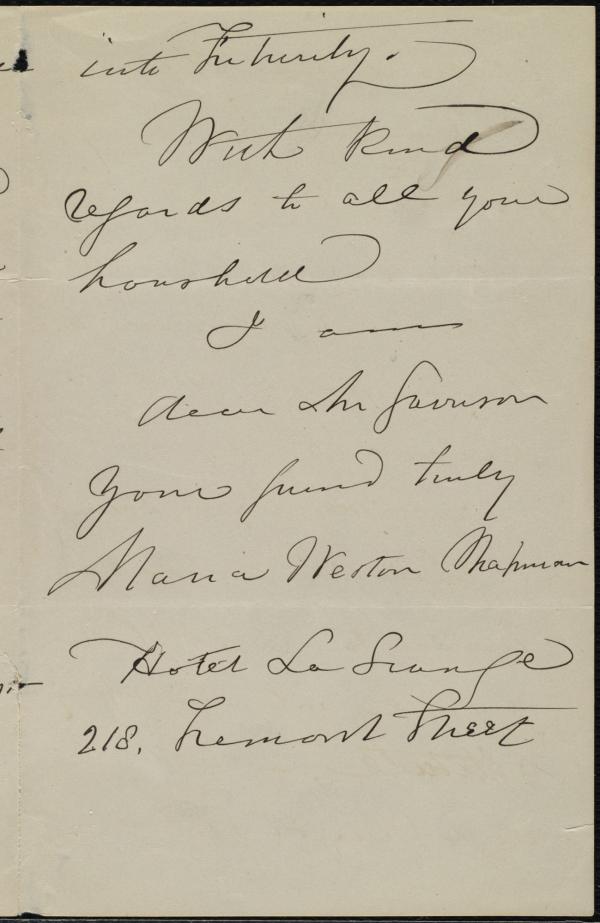 into Futurity.
With kind
regards to all your
household
I am
dear Mr Garrison
Your friend truly
Maria Weston Chapman
Hotel La Grange
218, Tremont Street